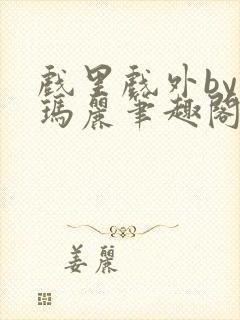 戲里戲外by
瑪麗筆趣閣
姜麗